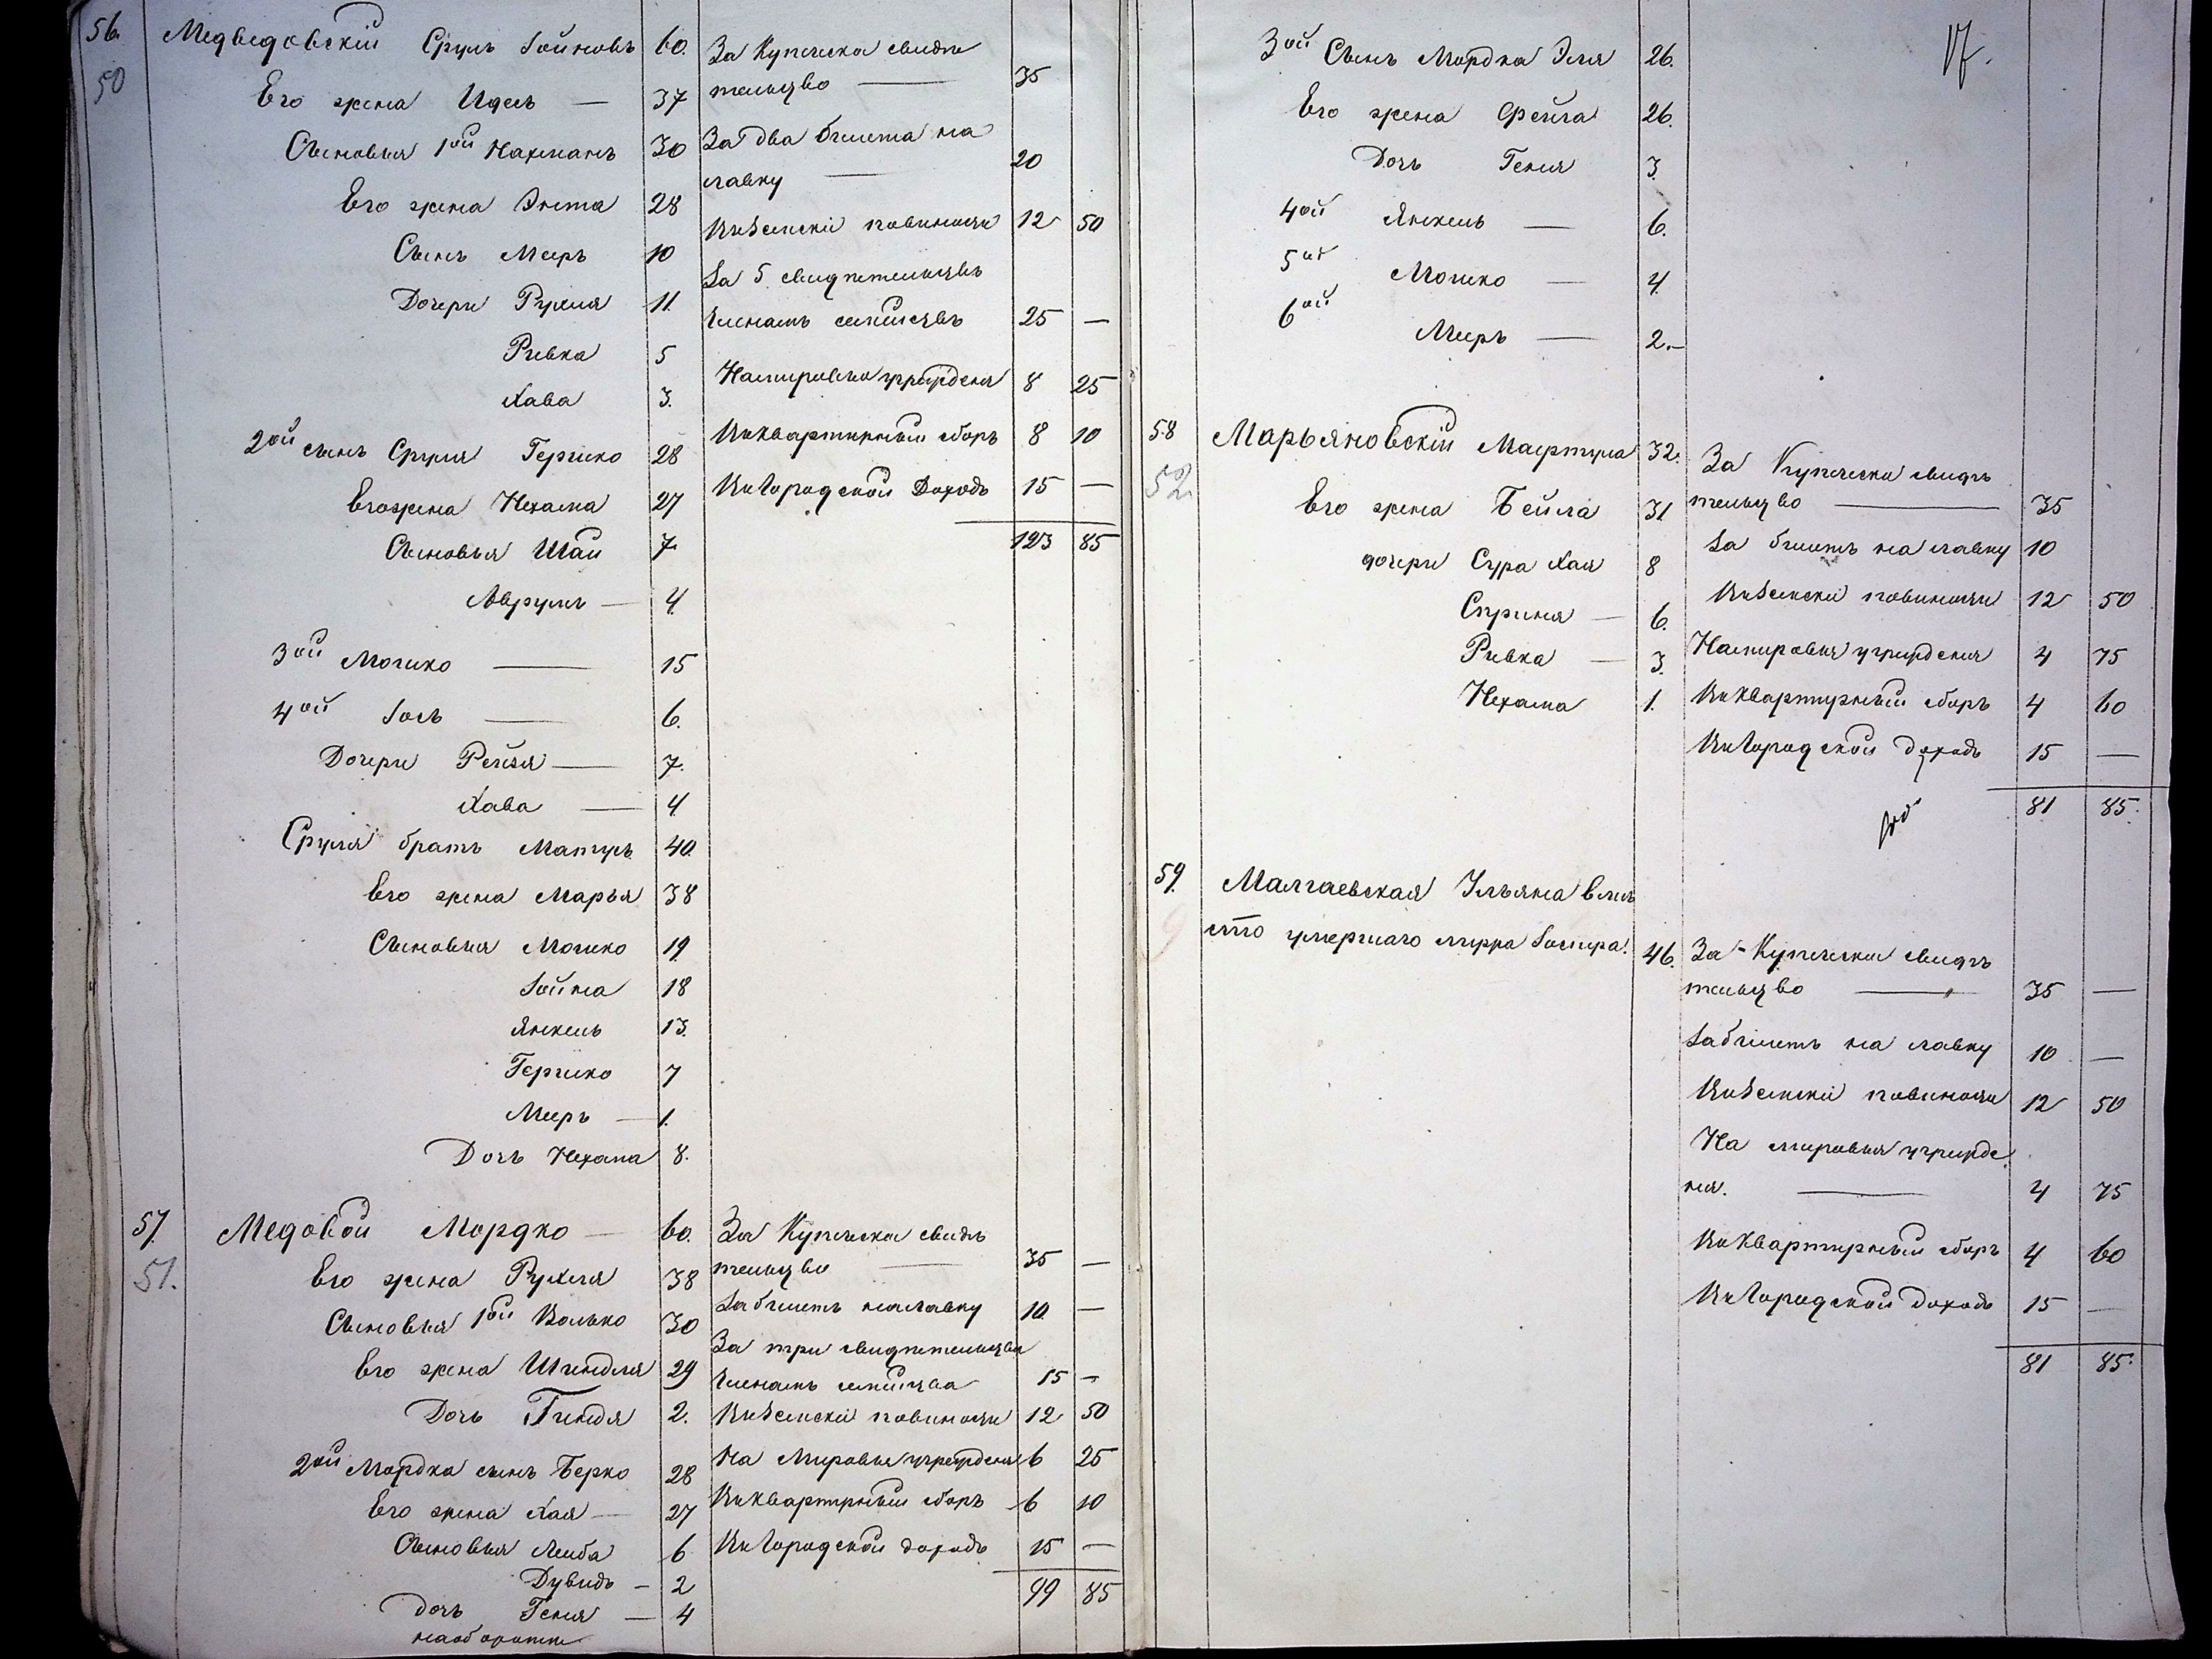 56. Медведовскій Сруль Іойновъ 60. За Купческа свидѣ
50
тельство — 35
Его жена Идесь — 37
Сыновья 1ой Нахманъ 30 За два билета на
лавку — 20
Его жена Энта 28
На Земскіе повиности 12 50
Сынъ Меиръ 10
За 5 свидѣтельствъ
Дочери Рухля 11.
Членамъ семействъ 25 —
Ривка 5
На мировые учрежденя 8 25
Хава 3.
2ой сынъ Сруля Гершко 28 На Квартирный сборъ 8 10
Его жена Нехама 27 На Городской Доходъ 15 —
Сыновья Шая 7 123 85
Аврумъ — 4.
3ой Мошко — 15
4ой Іось — 6.
Дочери Рейзя — 7.
Хава — 4
Сруля братъ Матусъ 40.
Его жена Марья 38
Сыновья Мошко 19
Іойна 18
Янкель 13.
Гершко 7
Меиръ — 1.
Дочь Нехама 8.
57. Медовой Мордко — 60. За Купческа свидѣ
51.
тельство — 35 —
Его жена Рухля 38
За билетъ на лавку 10 —
Сыновья 1ой Волько 30
За три свидѣтельства
Его жена Шпиндля 29 Членамъ семейства 15 —
Дочь Гиндя 2. На Земскіе повиности 12 50
2ой Мордка сынъ Берко 28 На Мировые учрежденя 6 25
Его жена Хая — 27 На Квартирный сборъ 6 10
Сыновья Лейба 6 На Городской доходъ 15 —
Дувидъ — 2 99 85
дочь Геня — 4
на оборотѣ
17.
3ой Сынъ Мордка Эля 26.
Его жена Фейга 26.
Дочь Геня 3.
4ой Янкель — 6.
5ой Мошко — 4.
6ой Меиръ — 2.—
58 Марьяновскій 32. За Купческа свидѣ
52.
тельство — 35
Его жена Бейла 31
За билетъ на лавку 10
дочери Сура Хая 8
На Земскіе повиности 12 50
Сприня — 6.
Ривка — 3. На мировыя учрежденя 4 75
Нехама 1. На Квартирный сборъ 4 60
На Городской доходъ 15 —
81 85.
59. Малгаевская Ульяна вмѣ
9
сто умершаго мужа Іосифа. 46. За Купческа свидѣ
тельство — 35 —
За билетъ на лавку 10 —
На Земскіе повиности 12 50
На мировыя учрежде
ня. — 4 75
На Квартирный сборъ 4 60
На Городской доходъ 15 —
81 85.